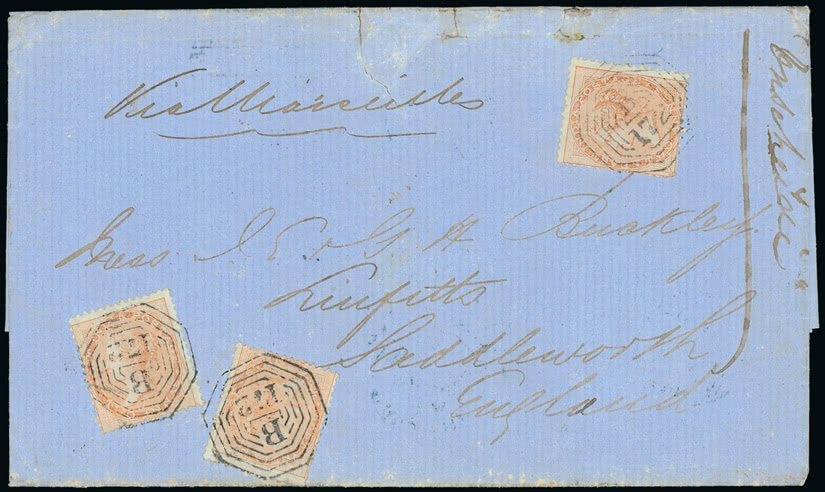 Via Marseilles
B
172
Mess. J. E & G H Buckley
Linfitts
Saddleworth
England
B
172
B
172